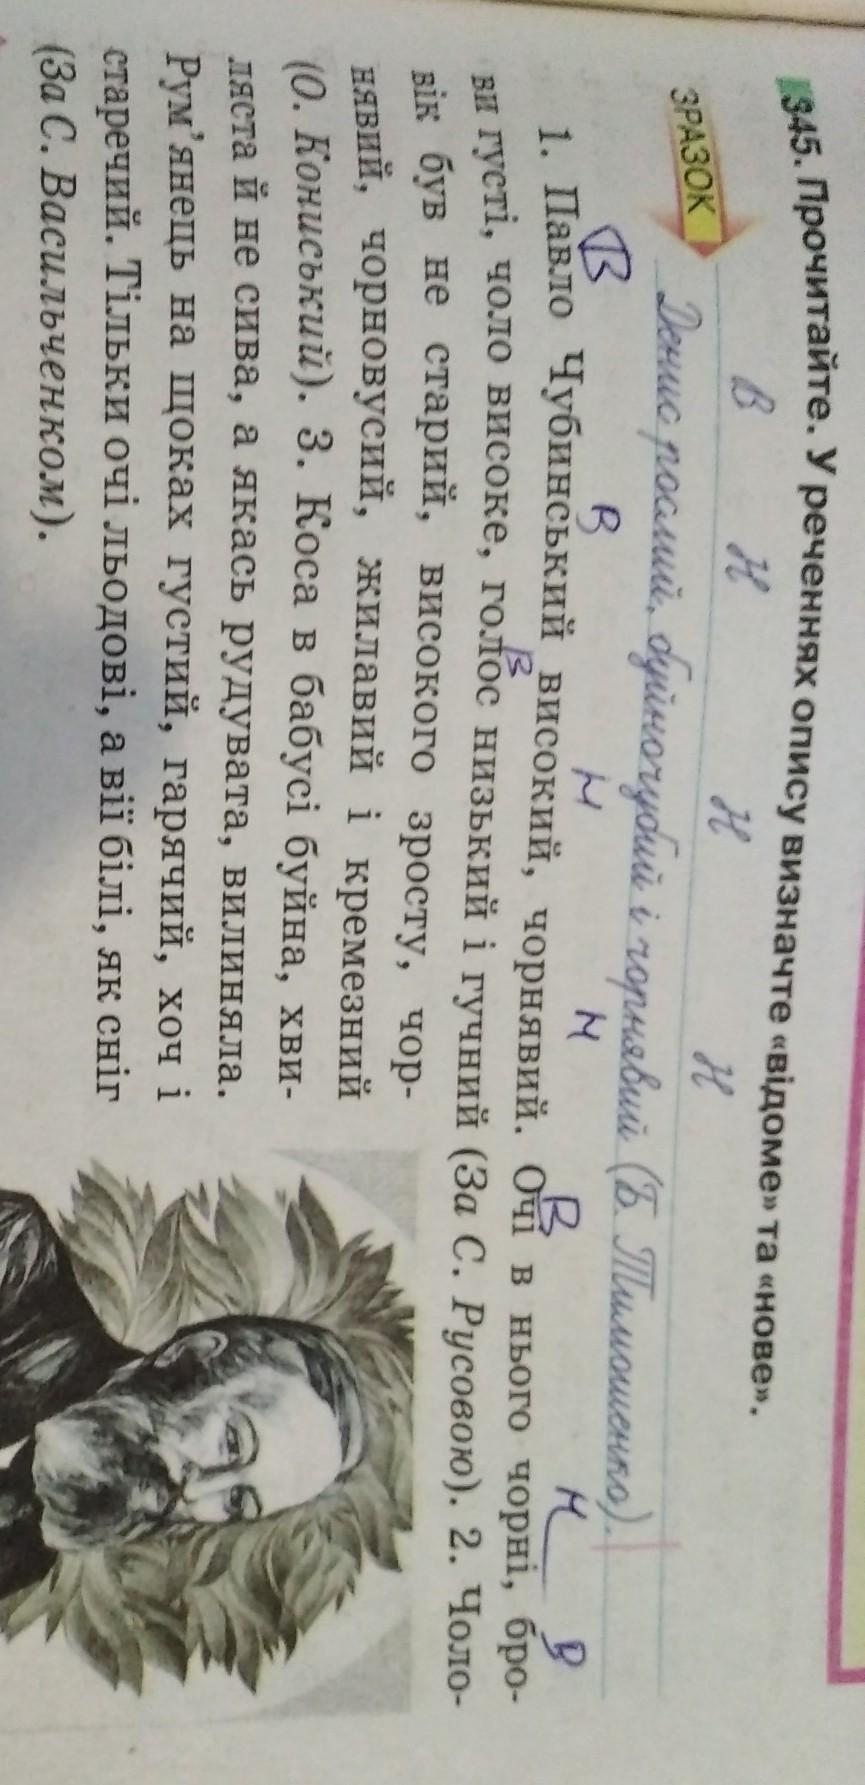 345. Прочитайте. У реченнях опису визначте «відоме» та «нове».
В Н Н Н
ЗРАЗОК Денис рослий, буйночубий і чорнявий (Б. Тимошенко).
В В Н Н Н В
1. Павло Чубинський високий, чорнявий. Очі в нього чорні, бро-
В В
ви густі, чоло високе, голос низький і гучний (За С. Русовою). 2. Чоло-
вік був не старий, високого зросту, чор-
нявий, чорновусий, жилавий і кремезний
(О. Кониський). 3. Коса в бабусі буйна, хви-
ляста й не сива, а якась рудувата, вилиняла.
Рум’янець на щоках густий, гарячий, хоч і
старечий. Тільки очі льодові, а вії білі, як сніг
(За С. Васильченком).